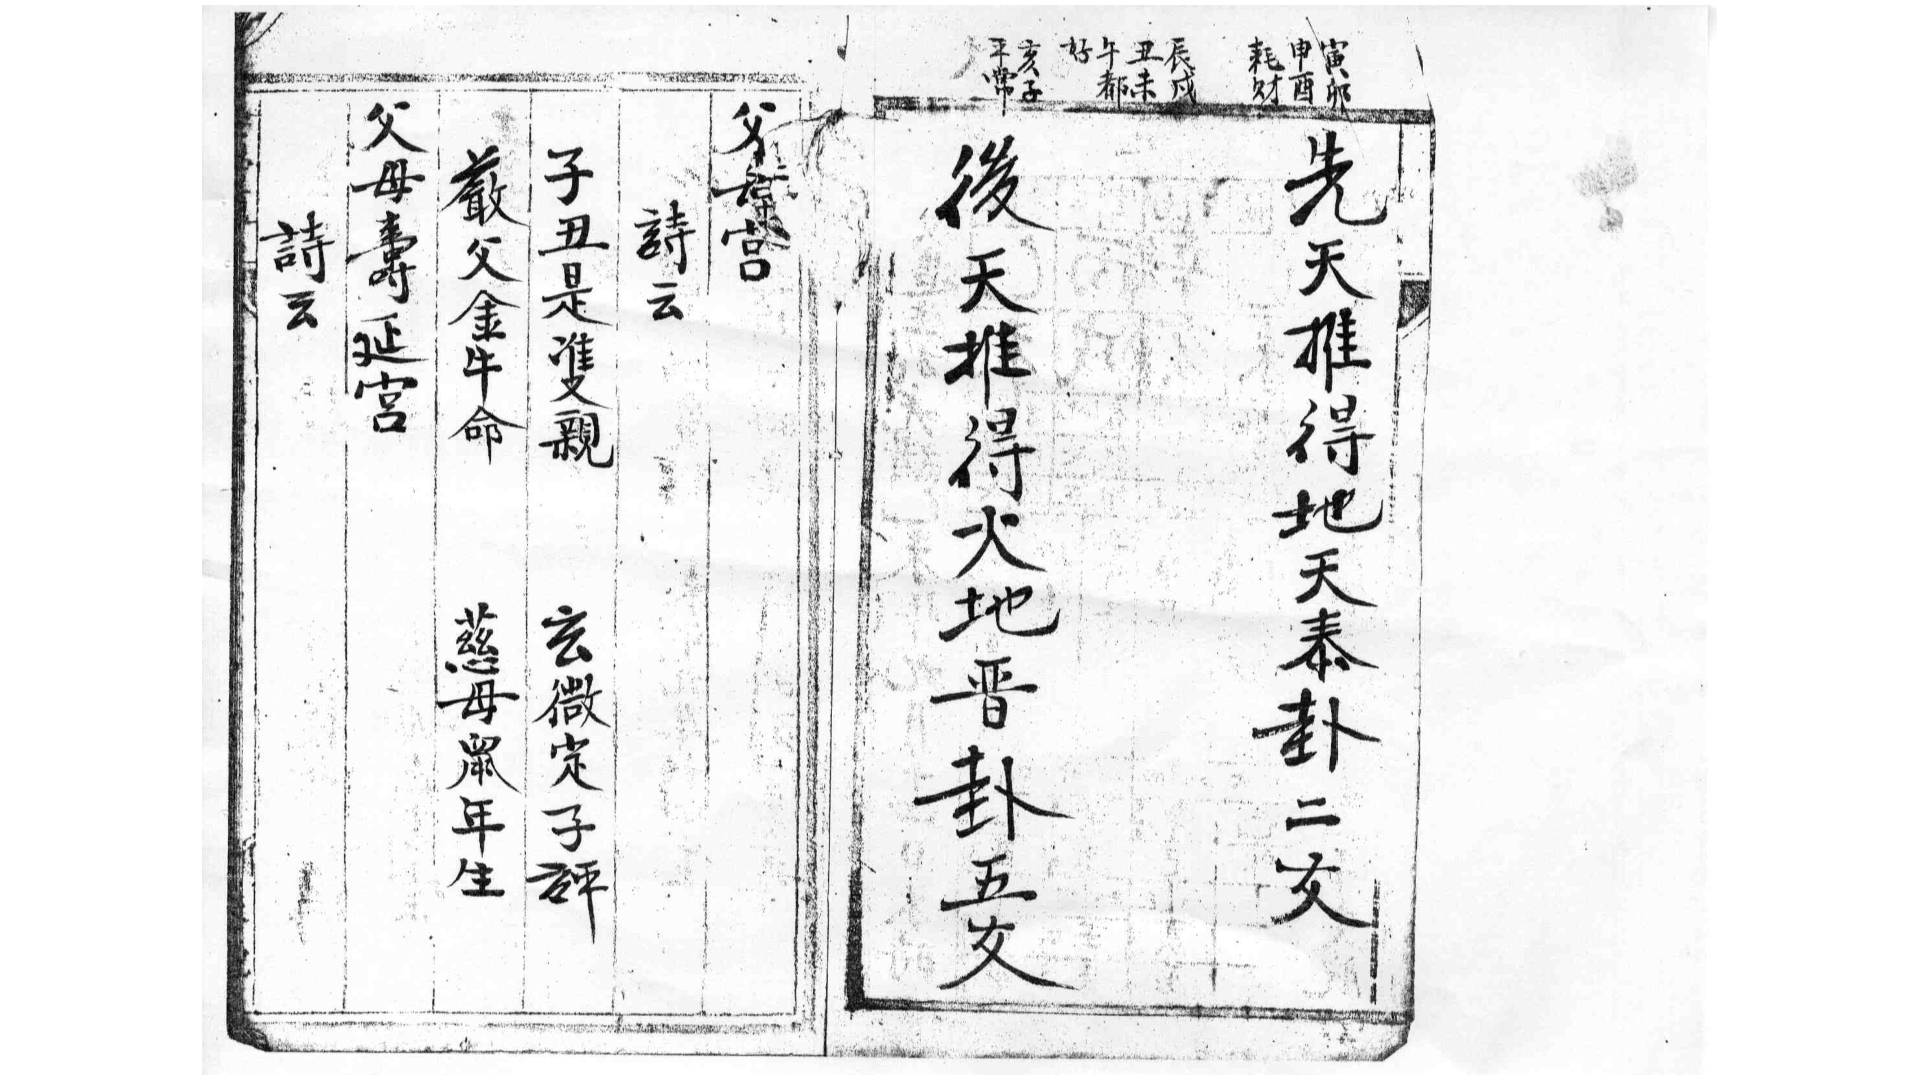 寅卯
申酉
耗財
辰戍
丑未
午都
好
亥子
平常
先天推得地天泰卦二爻
後天推得火地晋卦五爻
父母宮
詩云
子丑是准雙親 玄微定子評
嚴父金牛命 慈母鼠年生
父母壽延宮
詩云